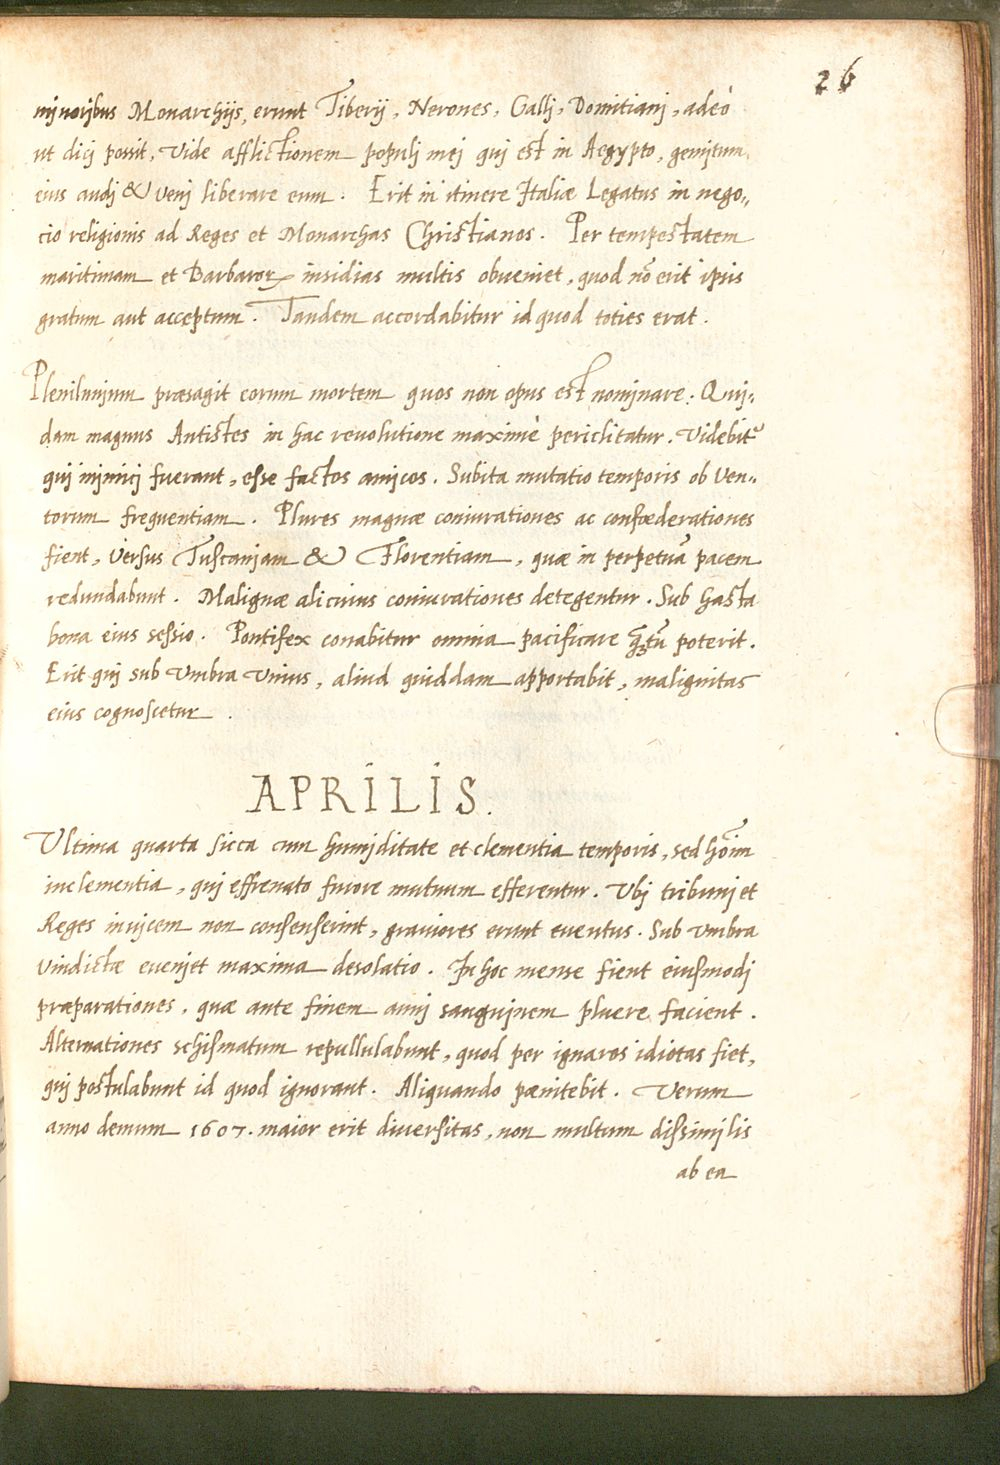 26
minoribus Monarchijs, erunt Tiberij, Nerones, Gallj, Domitianj, adeò
ut dicj possit, Vide afflictionem populj mej quj est in Aegypto, gemitum
eius audj & venj liberare eum. Erit in itinere Italiæ Legatus in nego„
cio religionis ad Reges et Monarchas Christianos. Per tempestatem
maritimam et Barbaror insidias multis obueniet, quod nō erit ipsis
gratum aut acceptum. Tandem accordabitur id quod toties erat.
Plenilunium præsagit eorum mortem quos non opus est nominare: Quj„
dam magnus Antistes in hac reuolutione maximè periclitatur. Videbit᷑
quj inimicj fuerant, esse factos amicos. Subita mutatio temporis ob Ven„
torum frequentiam. Plures magnæ coniurationes ac confœderationes
fient, versus Tuscaniam & Florentiam, quæ in perpetuā pacem
redundabunt. Malignæ alicuius coniurationes detegentur. Sub hasta
bona eius sessio. Pontifex conabitur omnia pacificare q̄tū poterit.
Erit quj sub Vmbra Vnius, aliud quiddam apportabit, malignitas
eius cognoscetur.
APRILIS.
Vltima quarta sicca cum humiditate et clementia temporis, sed hōim
inclementia, quj effrenato furore mutuum efferentur. Vbj tribunj et
Reges inuicem non consenserint, grauiores erunt euentus. Sub Vmbra
Vindictæ eueniet maxima desolatio. In hoc mense fient eiusmodj
præparationes, quæ ante finem annj sanguinem pluere facient.
Alternationes schismatum repullulabunt, quod per ignaros idiotas fiet,
quj postulabunt id quod ignorant. Aliquando pœnitebit. Verum
anno demum 1607. maior erit diuersitas, non multum dissimilis
ab ea